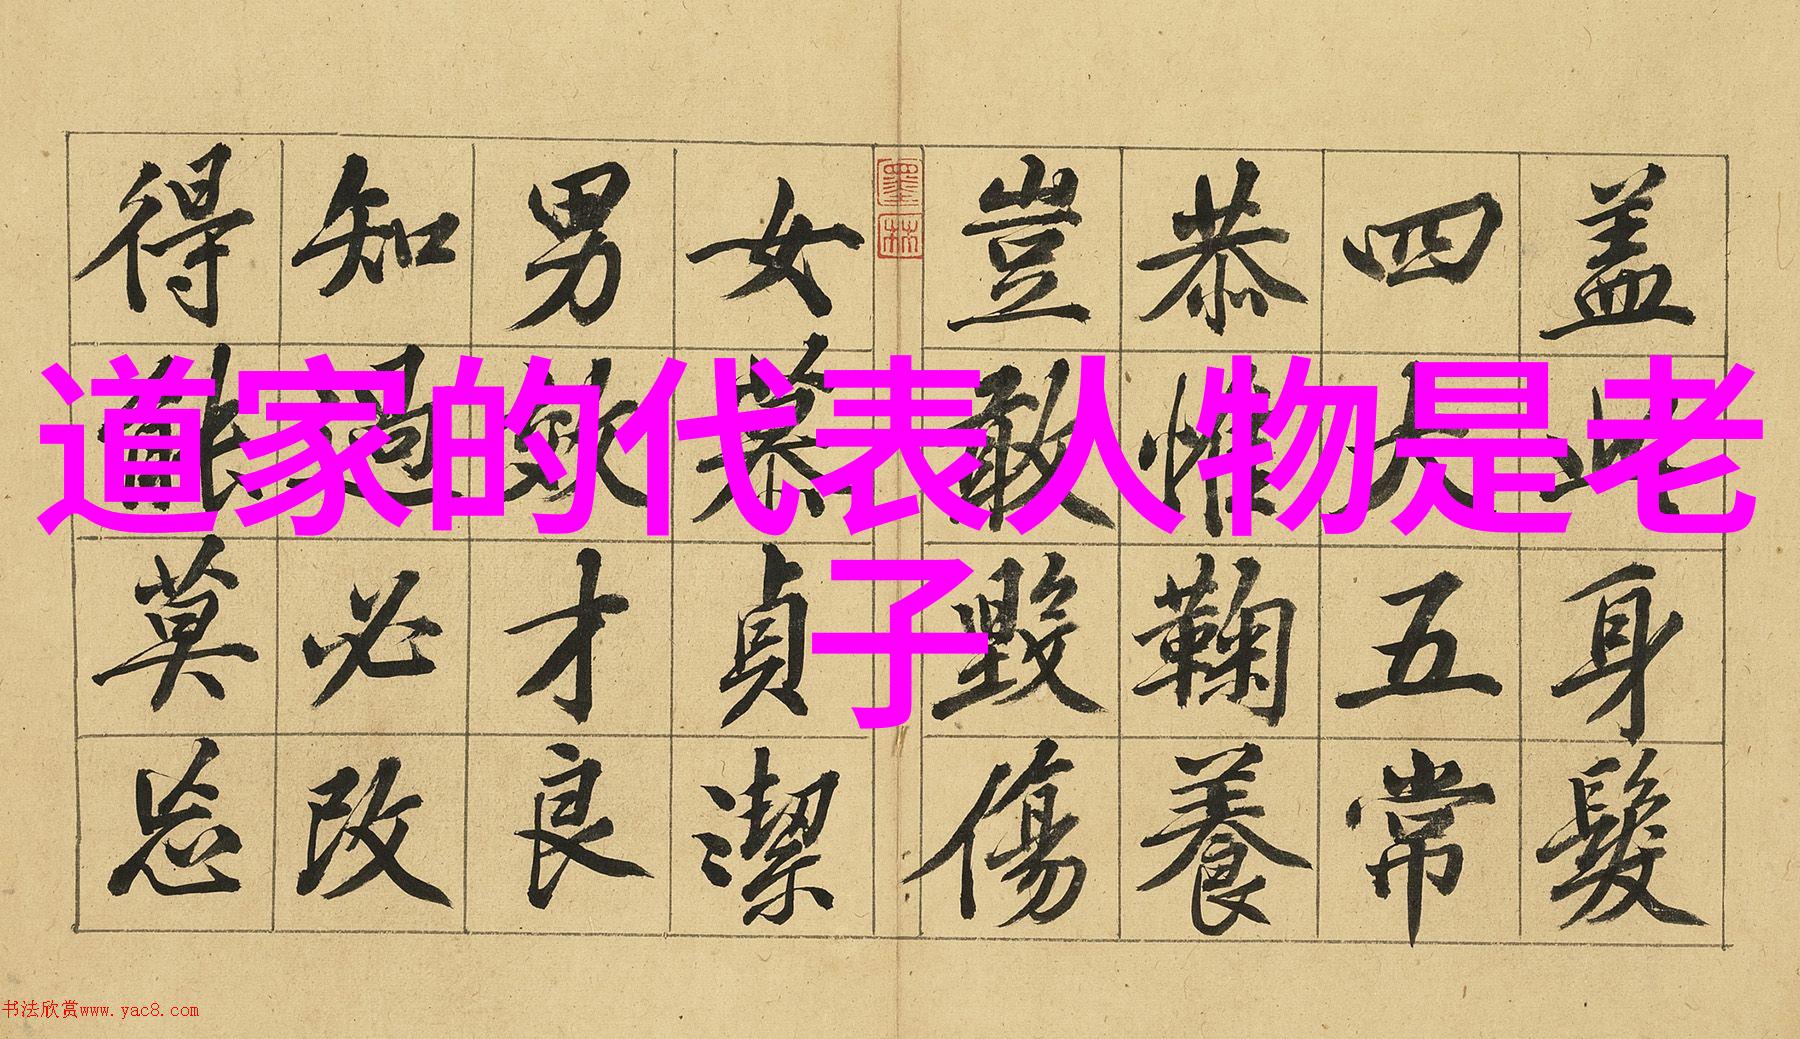 道家的代表人物是老
子
盖此身髮
四大五常
恭惟鞠養
豈敢毀傷
墨林
女慕貞潔
男效才良
知過必改
得能莫忘
书法欣赏www.yac8.com